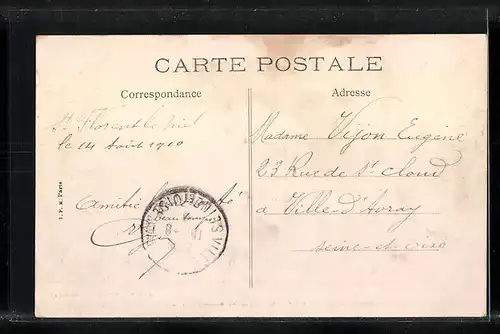 CARTE POSTALE
Correspondance
Adresse
St Florent le Viel
le 14 Août 1910
Amitié
beau temps
Madame Vijon Eugene
23 Rue de St Cloud
a Ville-d'Avray
Seine-et-Oise